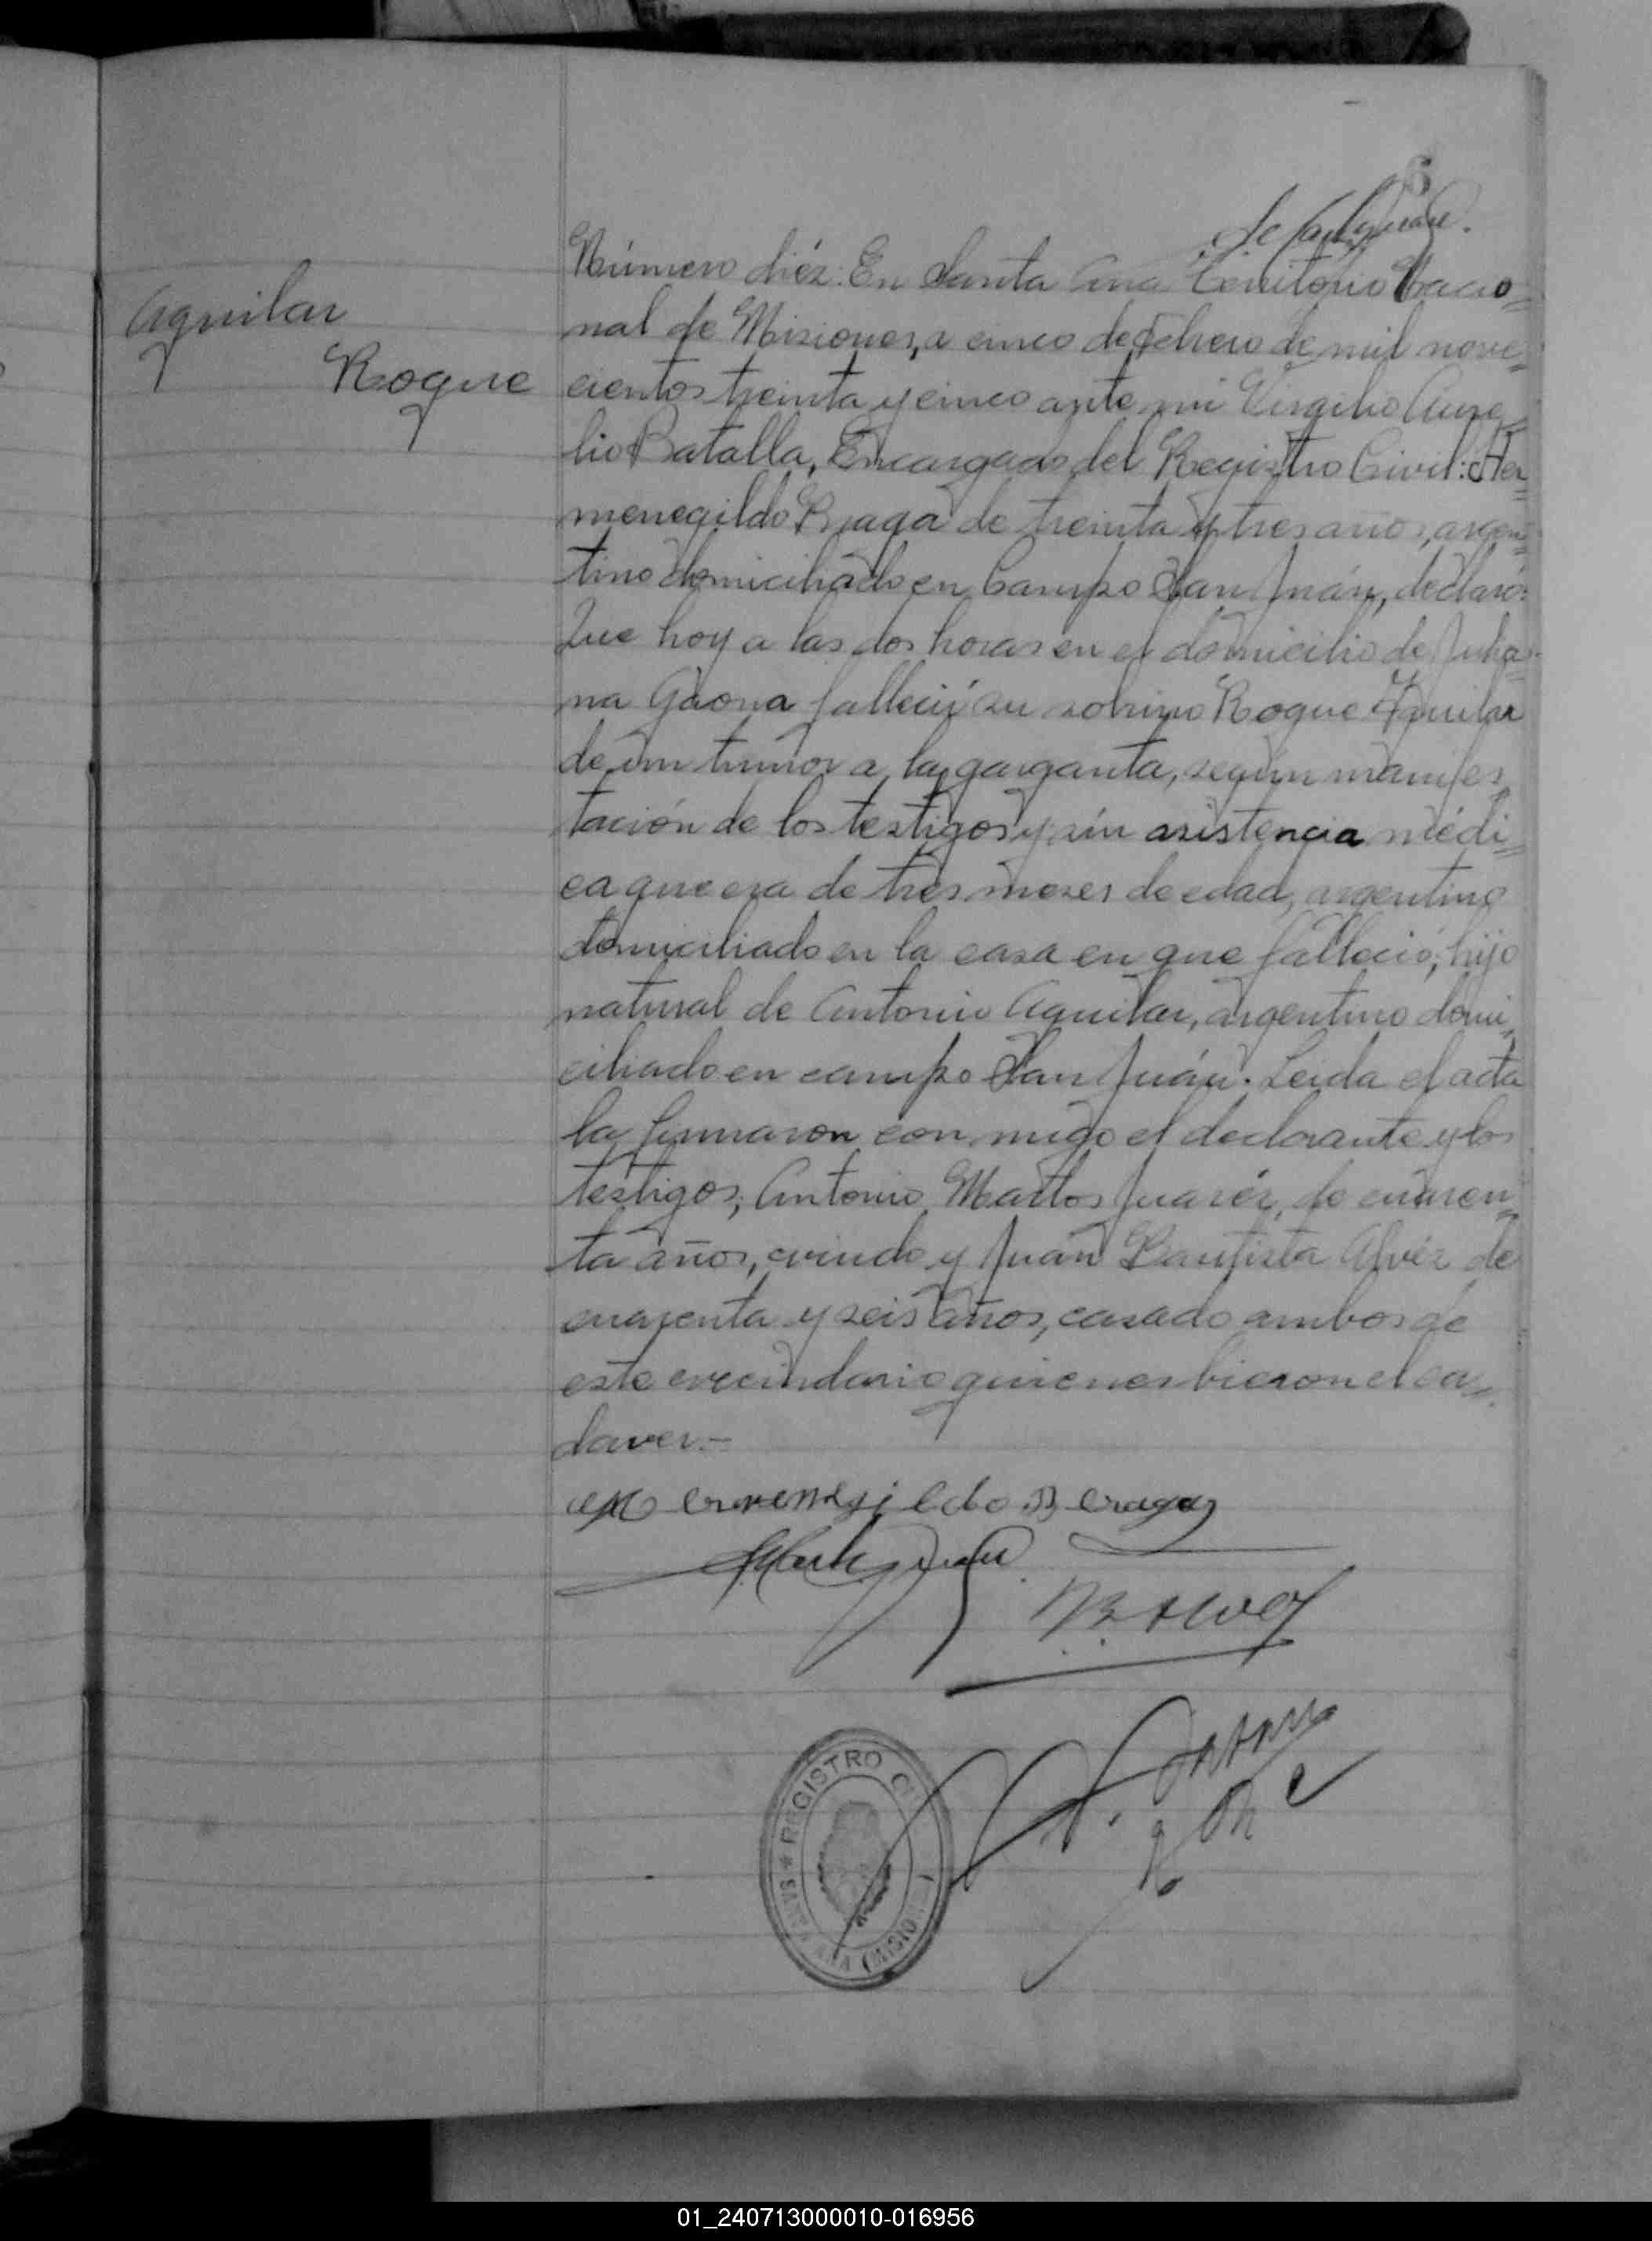 Aguilar
Roque
6
Número diéz: En Santa Ana Territorio Nacio=
nal de Misiones, a cinco de Febrero de mil nove=
cientos treinta y cinco ante mi Virgilio Aure=
lio Batalla, Encargado del Registro Civil: Her=
menegildo Braga de treinta y tres años, argen=
tino domiciliado en Campo San Juán, declaró:
Que hoy a las dos horas en el domicilio de Julia=
na Gaona falleció su sobrino Roque Aguilar
de un tumor a la garganta, según manifes=
tación de los testigos y sin asistencia médi=
ca que era de tres meses de edad, argentino
domiciliado en la casa en que falleció; hijo
natural de Antonio Aguilar, argentino domi=
ciliado en campo San Juán. Leida el acta
la firmaron con migo el declarante y los
testigos; Antonio Martos Juaréz, de cuaren=
ta años, viudo y Juán Bautista Alvéz de
cuarenta y seis años, casado ambos de
este vecindario quienes bieron el ca=
daver.-
B Alvez
REGISTRO CI
SANTA ANA (MISIONES)
01_240713000010-016956